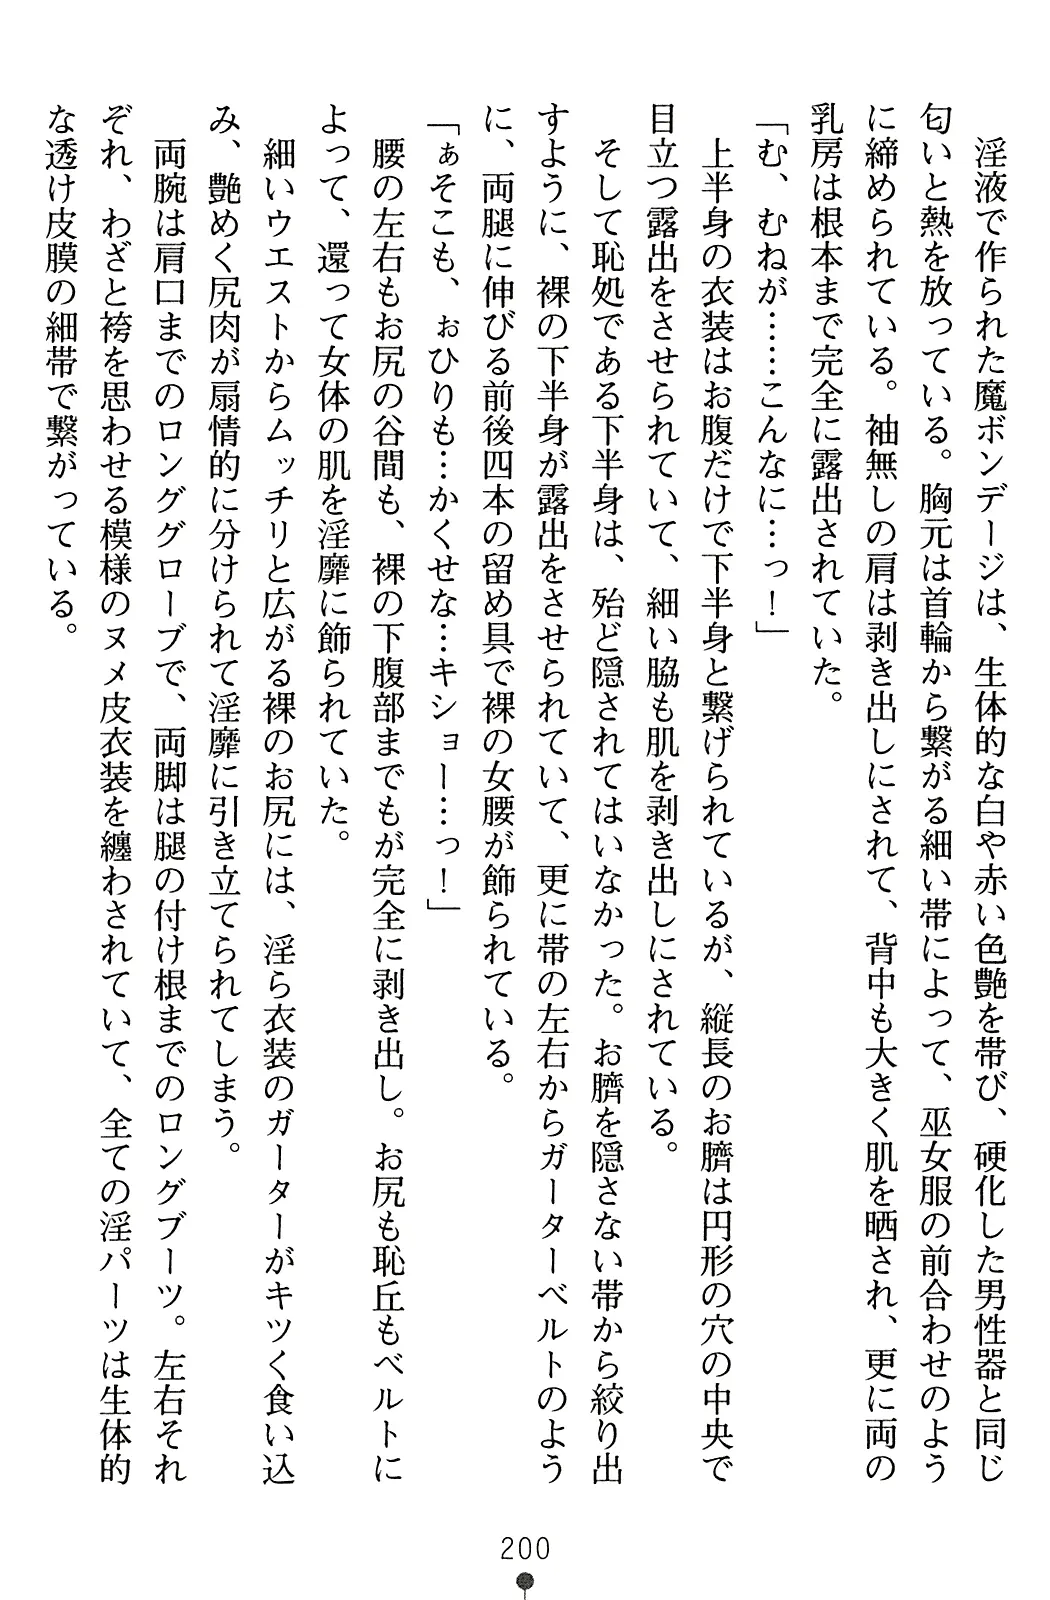 淫液で作られた魔ボンデージは、生体的な白や赤い色艶を帯び、硬化した男性器と同じ
匂いと熱を放っている。胸元は首輪から繋がる細い帯によって、巫女服の前合わせのよう
に締められている。袖無しの肩は剥き出しにされて、背中も大きく肌を晒され、更に両の
乳房は根本まで完全に露出されていた。
「む、むねが……こんなに…っ！」
　上半身の衣装はお腹だけで下半身と繋げられているが、縦長のお臍は円形の穴の中央で
目立つ露出をさせられていて、細い脇も肌を剥き出しにされている。
　そして恥処である下半身は、殆ど隠されてはいなかった。お臍を隠さない帯から絞り出
すように、裸の下半身が露出をさせられていて、更に帯の左右からガーターベルトのよう
に、両腿に伸びる前後四本の留め具で裸の女腰が飾られている。
「ぁそこも、ぉひりも…かくせな…キショー…っ！」
　腰の左右もお尻の谷間も、裸の下腹部までもが完全に剥き出し。お尻も恥丘もベルトに
よって、還って女体の肌を淫靡に飾られていた。
　細いウエストからムッチリと広がる裸のお尻には、淫ら衣装のガーターがキツく食い込
み、艶めく尻肉が扇情的に分けられて淫靡に引き立てられてしまう。
　両腕は肩口までのロンググローブで、両脚は腿の付け根までのロングブーツ。左右それ
ぞれ、わざと袴を思わせる模様のヌメ皮衣装を纏わされていて、全ての淫パーツは生体的
な透け皮膜の細帯で繋がっている。
200